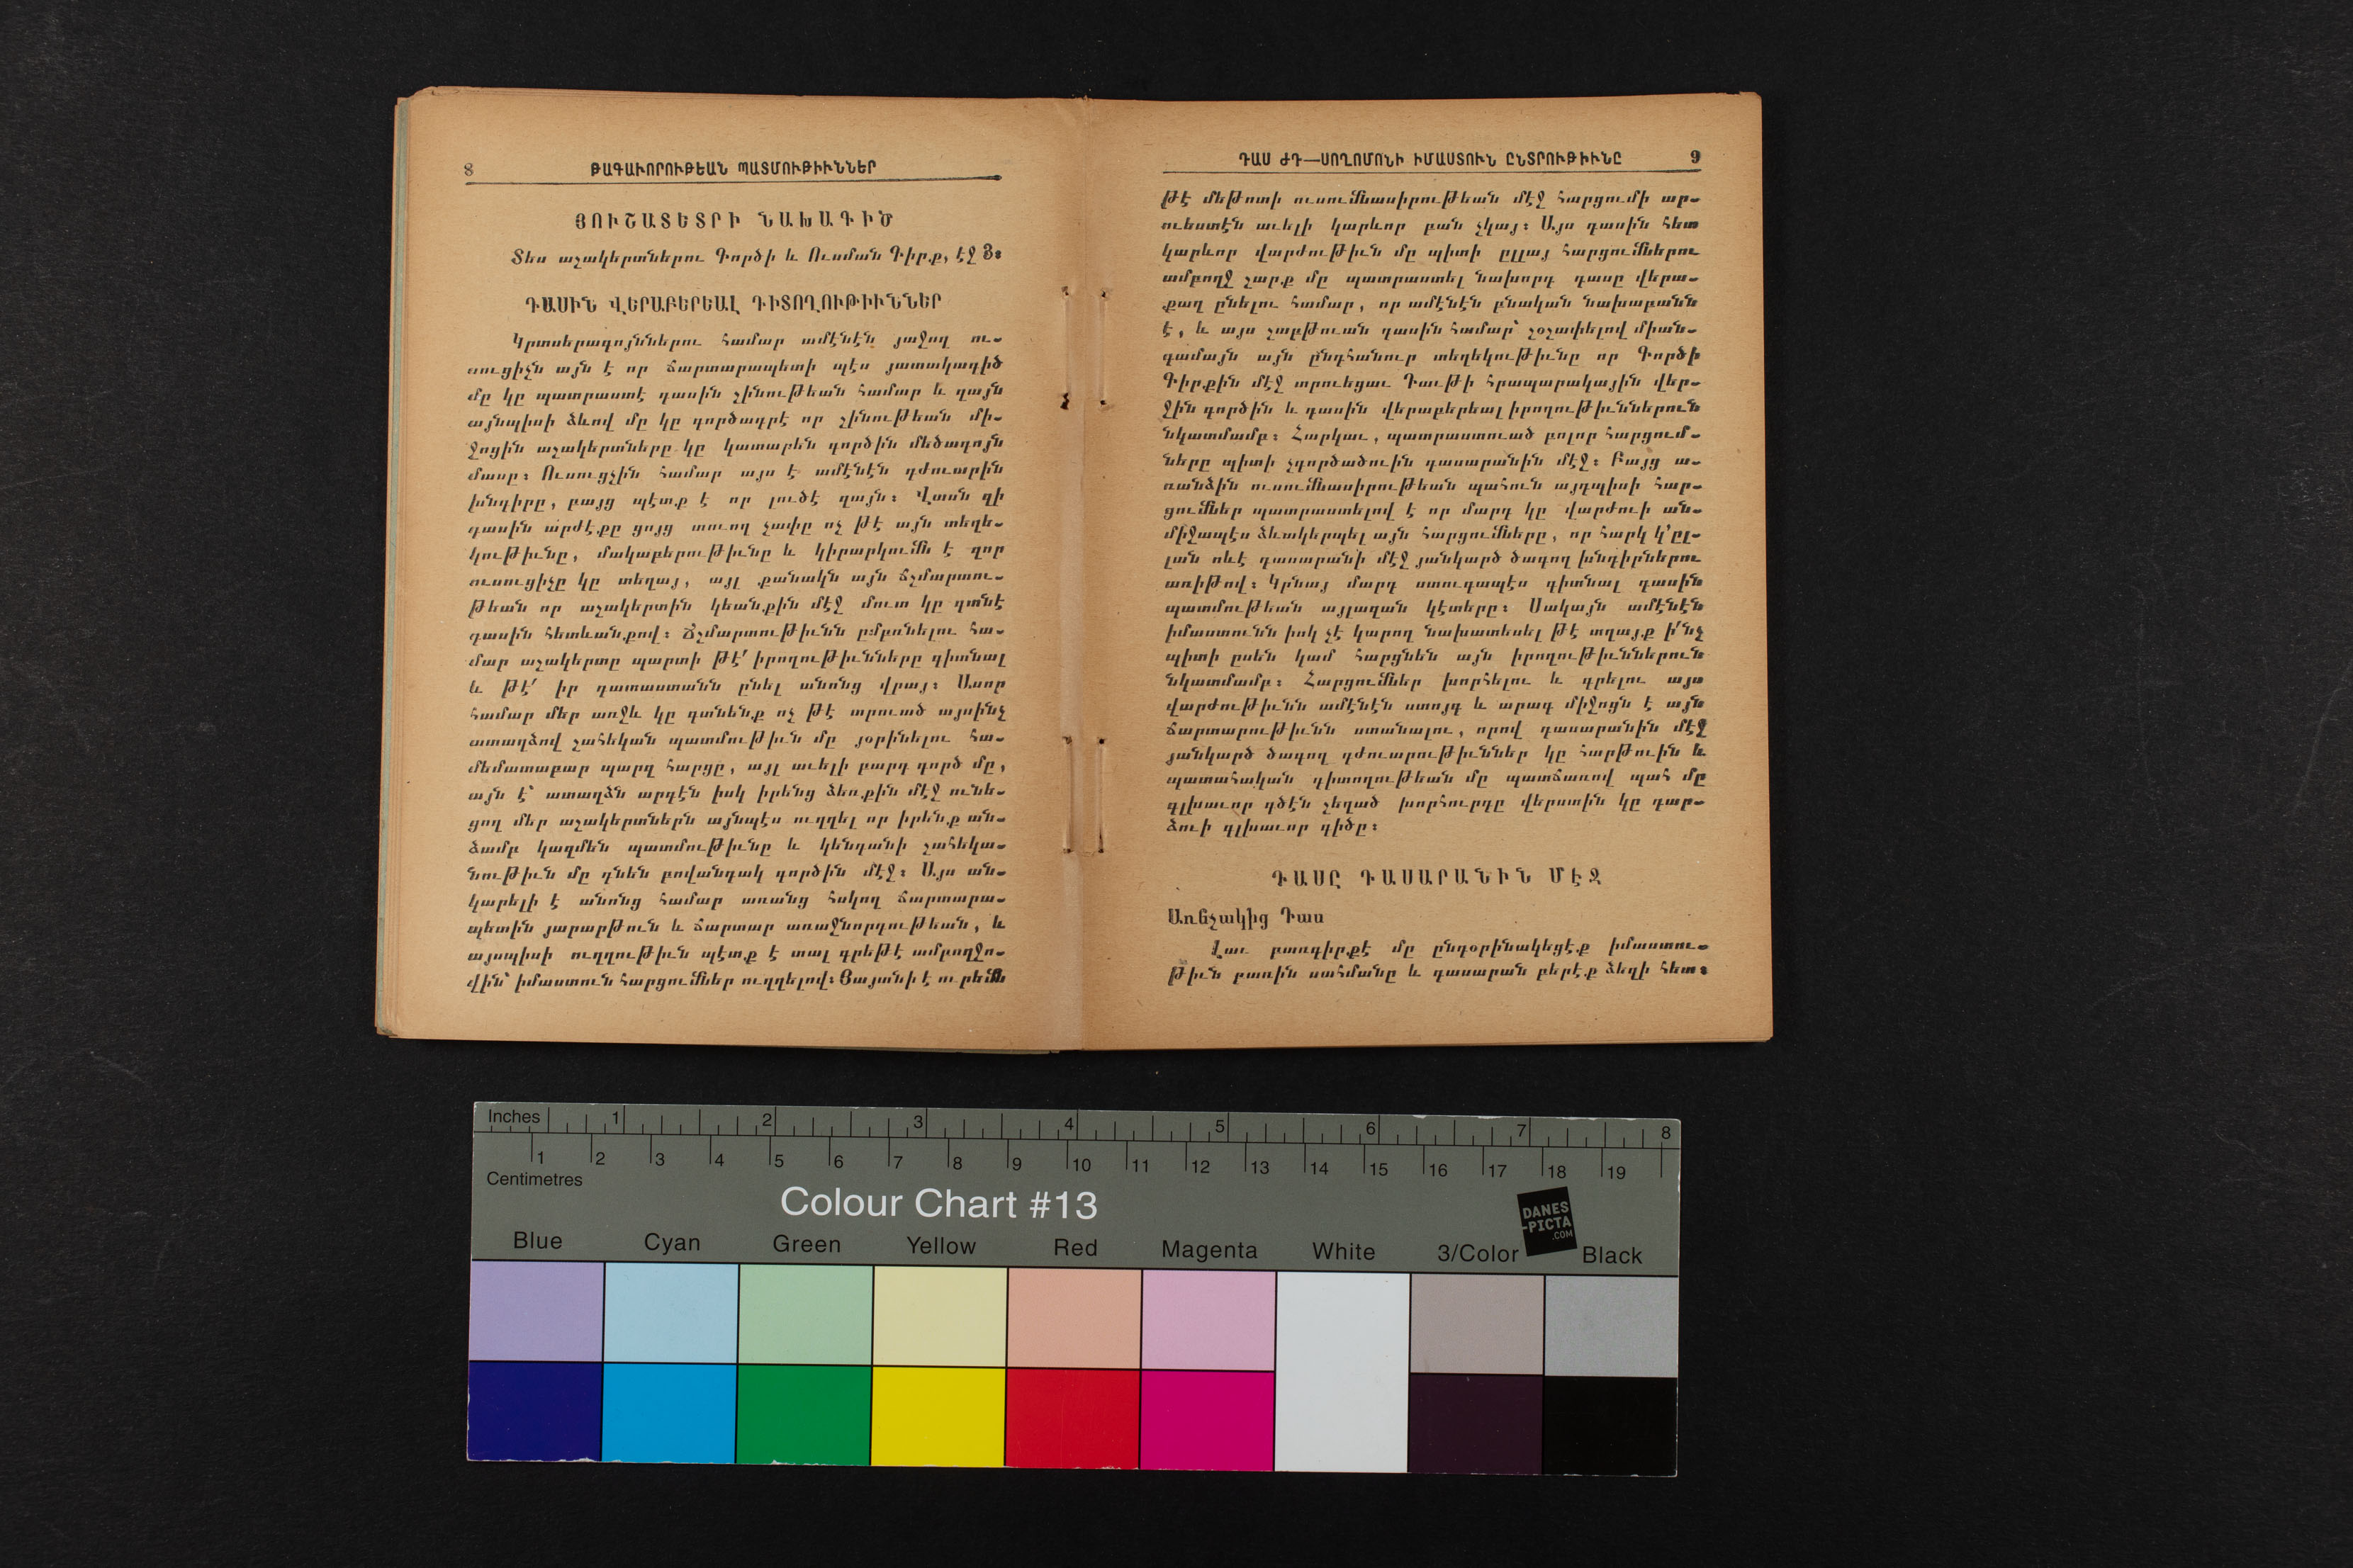 8 ԹԱԳԱՒՈՐՈՒԹԵԱՆ ՊԱՏՄՈՒԹԻՒՆՆԵՐ
ՅՈՒՇԱՏԵՏՐԻ ՆԱԽԱԳԻԾ
Տես աշակերտներու Գործի և Ուսման Գիրք, էջ 3։
ԴԱՍԻՆ ՎԵՐԱԲԵՐԵԱԼ ԴԻՏՈՂՈՒԹԻՒՆՆԵՐ
Կրտսերագոյններու համար ամէնէն յաջող ու-
սուցիչն այն է որ ճարտարապետի պէս յատակագիծ
մը կը պատրաստէ դասին շինութեան համար և զայն
այնպիսի ձևով մը կը գործադրէ որ շինութեան մի-
ջոցին աշակերտները կը կատարեն գործին մեծագոյն
մասը։ Ուսուցչին համար այս է ամէնէն դժուարին
խնդիրը, բայց պէտք է որ լուծէ զայն։ Վասն զի
դասին արժէքը ցոյց տուող չափը ոչ թէ այն տեղե-
կութիւնը, մակաբերութիւնը և կիրարկումն է զոր
ուսուցիչը կը տեղայ, այլ քանակն այն ճշմարտու-
թեան որ աշակերտին կեանքին մէջ մուտ կը գտնէ
դասին հետևանքով։ Ճշմարտութիւնն ըմբռնելու հա-
մար աշակերտը պարտի թէ՛ իրողութիւնները գիտնալ
և թէ՛ իր դատաստանն ընել անոնց վրայ։ Ասոր
համար մեր առջև կը գտնենք ոչ թէ տրուած այսինչ
ատաղձով շահեկան պատմութիւն մը յօրինելու հա-
մեմատաբար պարզ հարցը, այլ աւելի բարդ գործ մը,
այն է՝ ատաղձն արդէն իսկ իրենց ձեռքին մէջ ունե-
ցող մեր աշակերտներն այնպէս ուղղել որ իրենք ան-
ձամբ կազմեն պատմութիւնը և կենդանի շահեկա-
նութիւն մը դնեն բովանդակ գործին մէջ։ Այս ան-
կարելի է անոնց համար առանց հսկող ճարտարա-
պետին յարաբթուն և ճարտար առաջնորդութեան, և
այսպիսի ուղղութիւն պէտք է տալ գրեթէ ամբողջո-
վին՝ իմաստուն հարցումներ ուղղելով։ Յայտնի է ուրեմն
ԴԱՍ ԺԴ—ՍՈՂՈՄՈՆԻ ԻՄԱՍՏՈՒՆ ԸՆՏՐՈՒԹԻՒՆԸ 9
թէ մեթոտի ուսումնասիրութեան մէջ հարցումի ար-
ուեստէն աւելի կարևոր բան չկայ։ Այս դասին հետ
կարևոր վարժութիւն մը պիտի ըլլայ հարցումներու
ամբողջ շարք մը պատրաստել նախորդ դասը վերա-
քաղ ընելու համար, որ ամէնէն բնական նախաբանն
է, և այս շաբթուան դասին համար՝ շօշափելով միան-
գամայն այն ընդհանուր տեղեկութիւնը որ Գործի
Գիրքին մէջ տրուեցաւ Դաւթի հրապարակային վեր-
ջին գործին և դասին վերաբերեալ իրողութիւններուն
նկատմամբ։ Հարկաւ, պատրաստուած բոլոր հարցում-
ները պիտի չգործածուին դասարանին մէջ։ Բայց ա-
ռանձին ուսումնասիրութեան պահուն այդպիսի հար-
ցումներ պատրաստելով է որ մարդ կը վարժուի ան-
միջապէս ձևակերպել այն հարցումները, որ հարկ կ՚ըլ-
լան ոևէ դասարանի մէջ յանկարծ ծագող խնդիրներու
առիթով։ Կրնայ մարդ ստուգապէս գիտնալ դասին
պատմութեան այլազան կէտերը։ Սակայն ամէնէն
իմաստունն իսկ չէ կարող նախատեսել թէ տղայք ի՛նչ
պիտի ըսեն կամ հարցնեն այն իրողութիւններուն
նկատմամբ։ Հարցումներ խորհելու և գրելու այս
վարժութիւնն ամէնէն ստոյգ և արագ միջոցն է այն
ճարտարութիւնն ստանալու, որով դասարանին մէջ
յանկարծ ծագող դժուարութիւններ կը հարթուին և
պատահական դիտողութեան մը պատճառով պահ մը
գլխաւոր գծէն շեղած խորհուրդը վերստին կը դար-
ձուի գլխաւոր գիծը։
ԴԱՍԸ ԴԱՍԱՐԱՆԻՆ ՄԷՋ
Առնչակից Դաս
Լաւ բառգիրքէ մը ընդօրինակեցէք իմաստու-
թիւն բառին սահմանը և դասարան բերէք ձեզի հետ։
Inches 1 2 3 4 5 6 7 8
1 2 3 4 5 6 7 8 9 10 11 12 13 14 15 16 17 18 19
Centimetres
Colour Chart #13
DANES
-PICTA
.COM
Blue Cyan Green Yellow Red Magenta White 3/Color Black